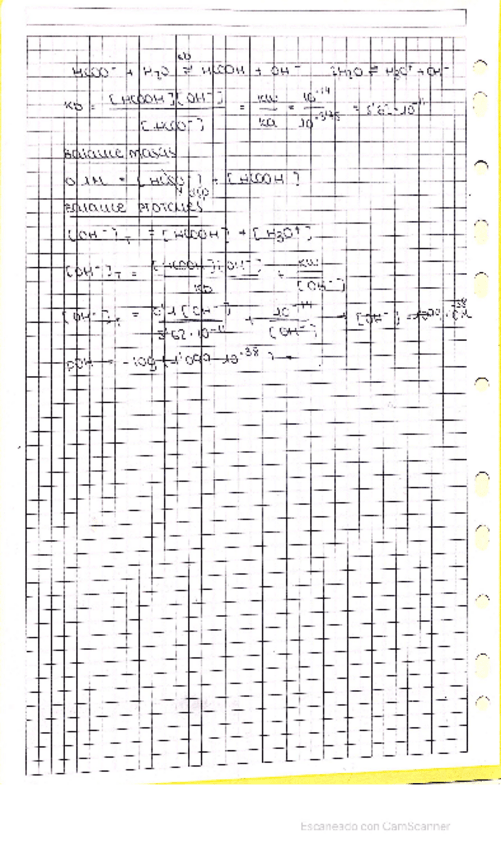 HCOO⁻ + H₂O ⇌ HCOOH + OH⁻ 2H₂O ⇌ H₃O⁺ + OH⁻
Kb = [HCOOH][OH⁻] / [HCOO⁻] = Kw / Ka = 10⁻¹⁴ / 10⁻³'⁷⁵ = 5'62·10⁻¹¹
Balance masas
0'1M = [HCOO⁻] + [HCOOH]
Balance protones
[OH⁻]T = [HCOOH] + [H₃O⁺]
[OH⁻]T = [HCOO⁻][OH⁻] / Kb + Kw / [OH⁻]
[OH⁻]T = 0'1[OH⁻] / 5'62·10⁻¹¹ + 10⁻¹⁴ / [OH⁻] → [OH⁻] =
pOH = -log
Escaneado con CamScanner